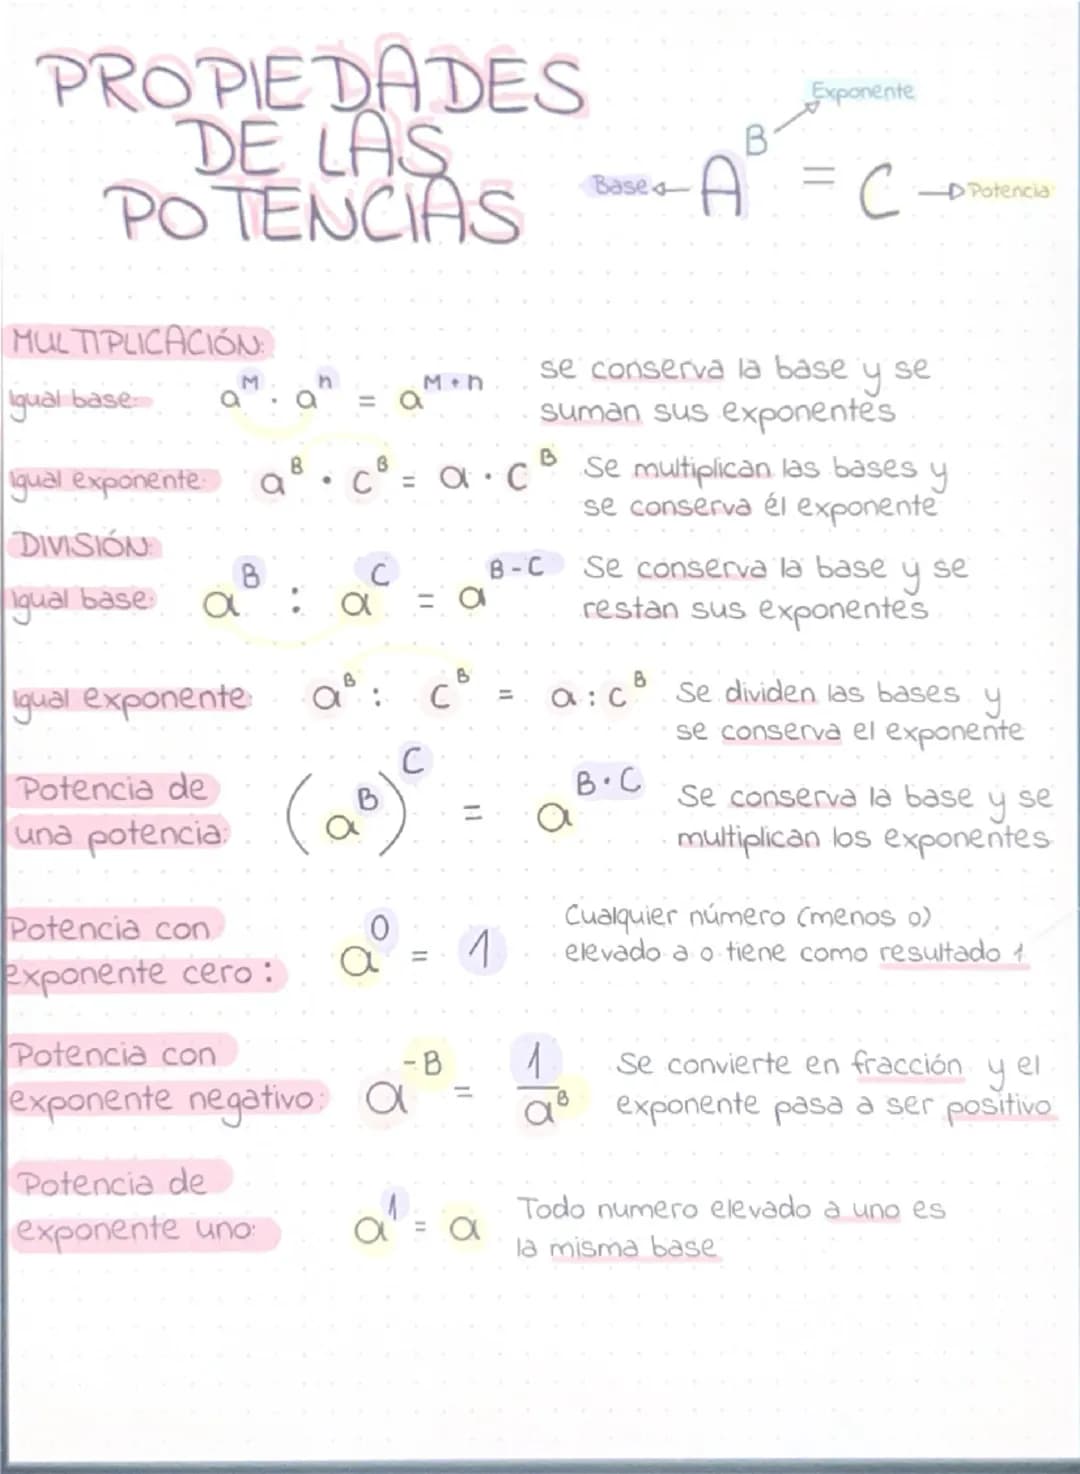 PROPIEDADES
DE LAS
POTENCIAS
Exponente
Base A^B = C Potencia
MULTIPLICACIÓN:
Igual base: a^M · a^n = a^(M+n) se conserva la base y se
suman sus exponentes
Igual exponente: a^B · c^B = a · c^B Se multiplican las bases y
se conserva él exponente
DIVISIÓN:
Igual base: a^B : a^C = a^(B-C) Se conserva la base y se
restan sus exponentes
Igual exponente: a^B : c^B = a : c^B Se dividen las bases y
se conserva el exponente
Potencia de
una potencia: (a^B)^C = a^(B·C) Se conserva la base y se
multiplican los exponentes
Potencia con
exponente cero: a^0 = 1 Cualquier número (menos 0)
elevado a 0 tiene como resultado 1
Potencia con
exponente negativo: a^-B = 1/a^B Se convierte en fracción y el
exponente pasa a ser positivo
Potencia de
exponente uno: a^1 = a Todo numero elevado a uno es
la misma base